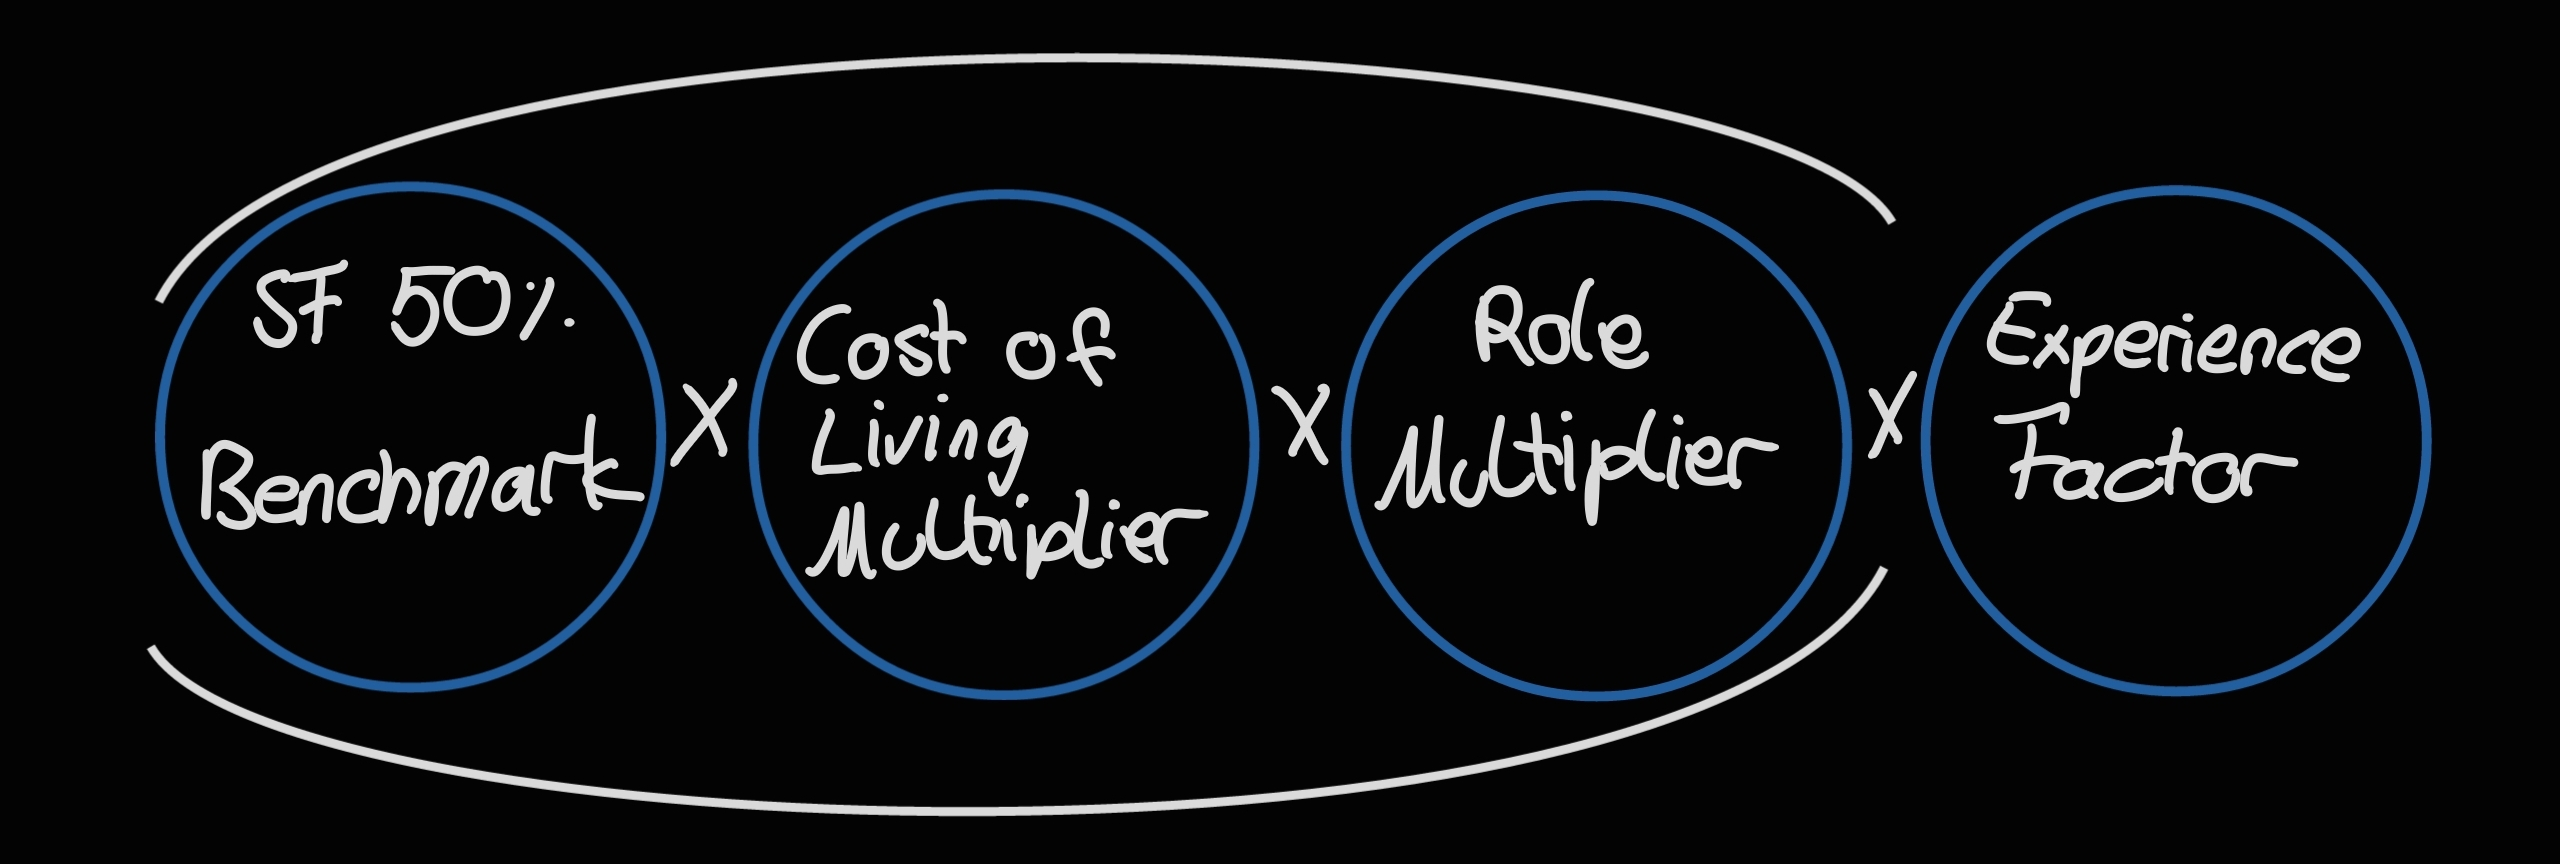 SF 50%.
Benchmark
X
Cost of
Living
Multiplier
X
Role
Multiplier
X
Experience
Factor